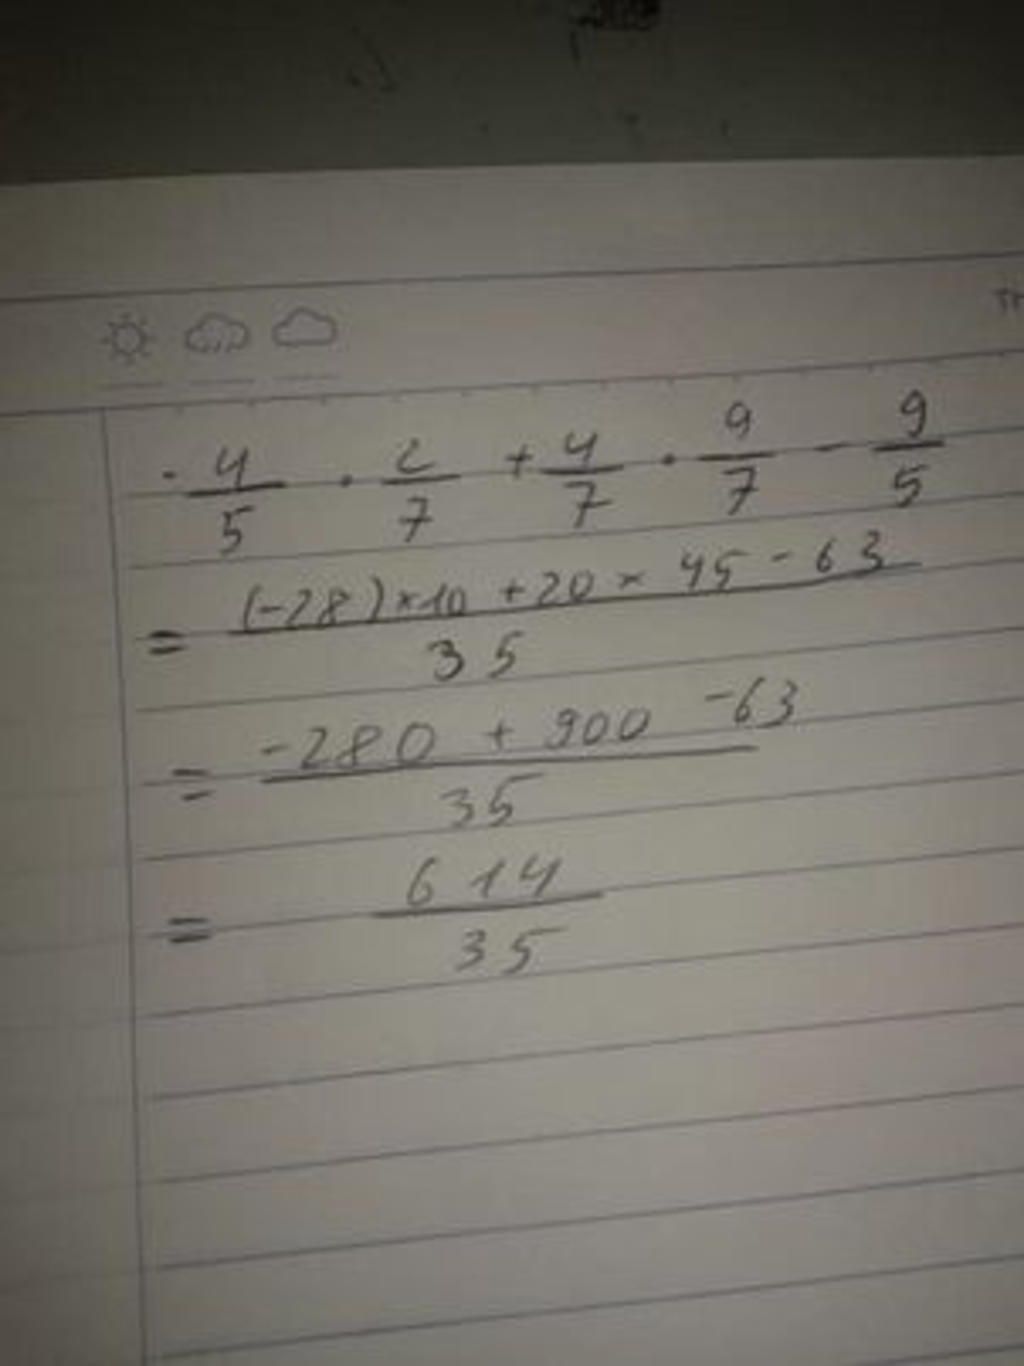 - 4/5 · 2/7 + 4/7 · 9/7 - 9/5
= (-28)×10 + 20 × 45 - 63 / 35
= -280 + 900 -63 / 35
= 614 / 35